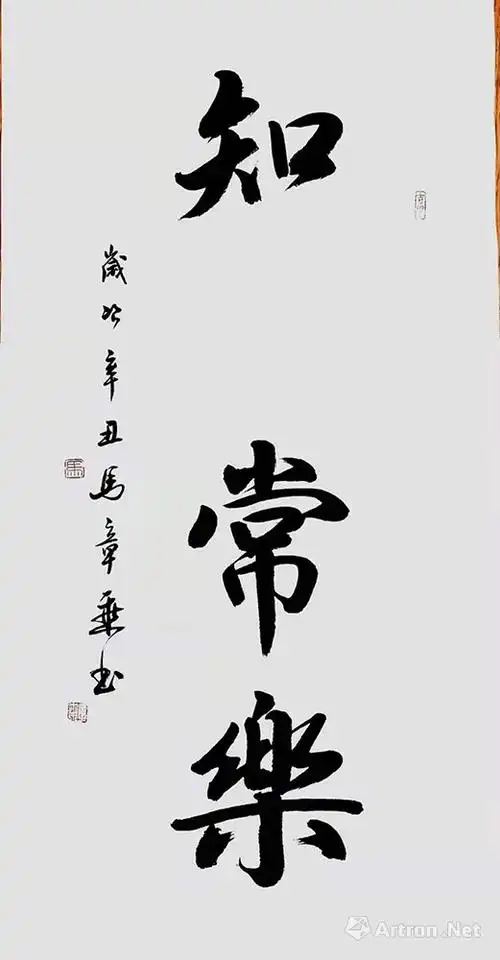 知常樂
歲次辛丑馬章乘书
馬
Artron.Net